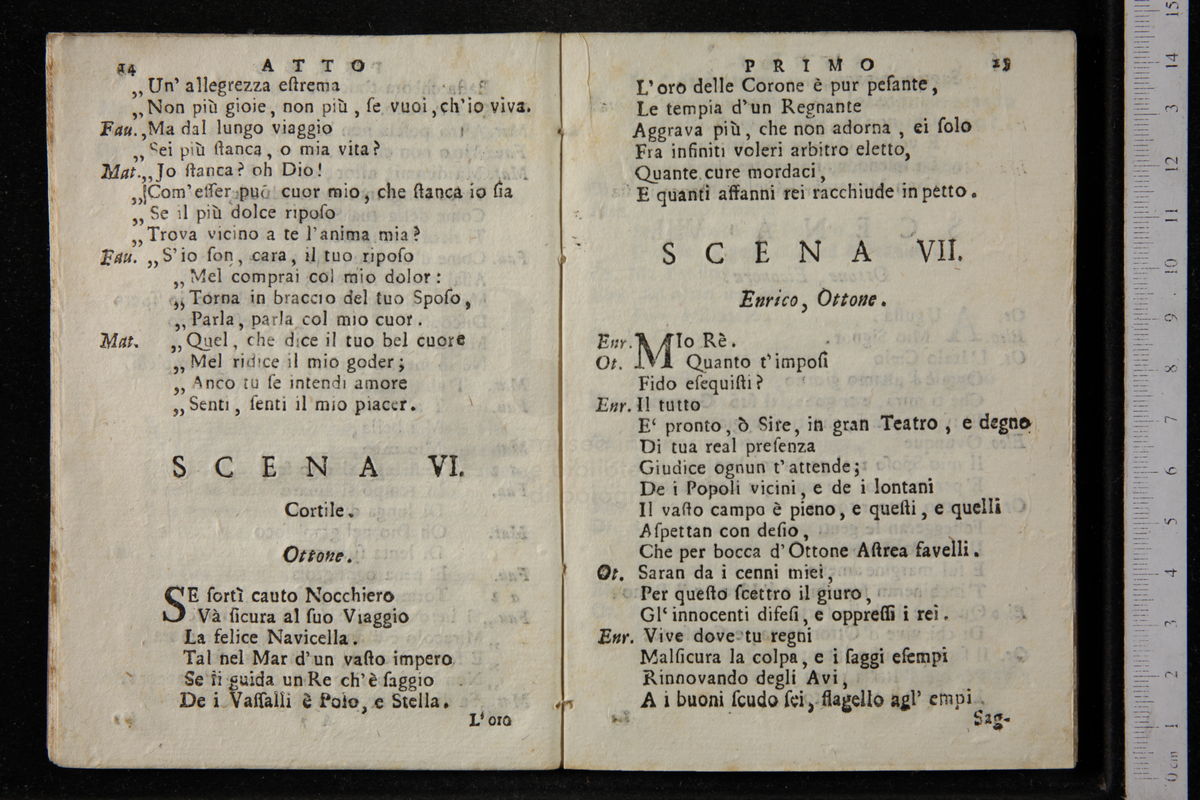 24 ATTO
„Un' allegrezza eſtrema
„Non più gioie, non più, ſe vuoi, ch'io viva.
Fau. „Ma dal lungo viaggio
„Sei più ſtanca, o mia vita?
Mat. „Jo ſtanca? oh Dio!
„Com' eſſer può cuor mio, che ſtanca io ſia
„Se il più dolce ripoſo
„Trova vicino a te l'anima mia?
Fau. „S'io ſon, cara, il tuo ripoſo
„Mel comprai col mio dolor:
„Torna in braccio del tuo Spoſo,
„Parla, parla col mio cuor.
Mat. „Quel, che dice il tuo bel cuore
„Mel ridice il mio goder;
„Anco tu ſe intendi amore
„Senti, ſenti il mio piacer.
SCENA VI.
Cortile.
Ottone.
SE ſortì cauto Nocchiero
Và ſicura al ſuo Viaggio
La felice Navicella.
Tal nel Mar d'un vaſto impero
Se li guida un Re ch'è ſaggio
De i Vaſſalli è Polo, e Stella.
L'oro
PRIMO 25
L'oro delle Corone è pur peſante,
Le tempia d'un Regnante
Aggrava più, che non adorna, ei ſolo
Fra infiniti voleri arbitro eletto,
Quante cure mordaci,
E quanti affanni rei racchiude in petto.
SCENA VII.
Enrico, Ottone.
Enr. MIo Rè.
Ot. Quanto t'impoſi
Fido eſequiſti?
Enr. Il tutto
E‘ pronto, ò Sire, in gran Teatro, e degno
Di tua real preſenza
Giudice ognun t'attende;
De i Popoli vicini, e de i lontani
Il vaſto campo è pieno, e queſti, e quelli
Aſpettan con deſio,
Che per bocca d'Ottone Aſtrea favelli.
Ot. Saran da i cenni miei,
Per queſto ſcettro il giuro,
Gl‘ innocenti difeſi, e oppreſſi i rei.
Enr. Vive dove tu regni
Malſicura la colpa, e i ſaggi eſempi
Rinnovando degli Avi,
A i buoni ſcudo ſei, flagello agl' empi
Sag-
0 cm 1 2 3 4 5 6 7 8 9 10 11 12 13 14 15